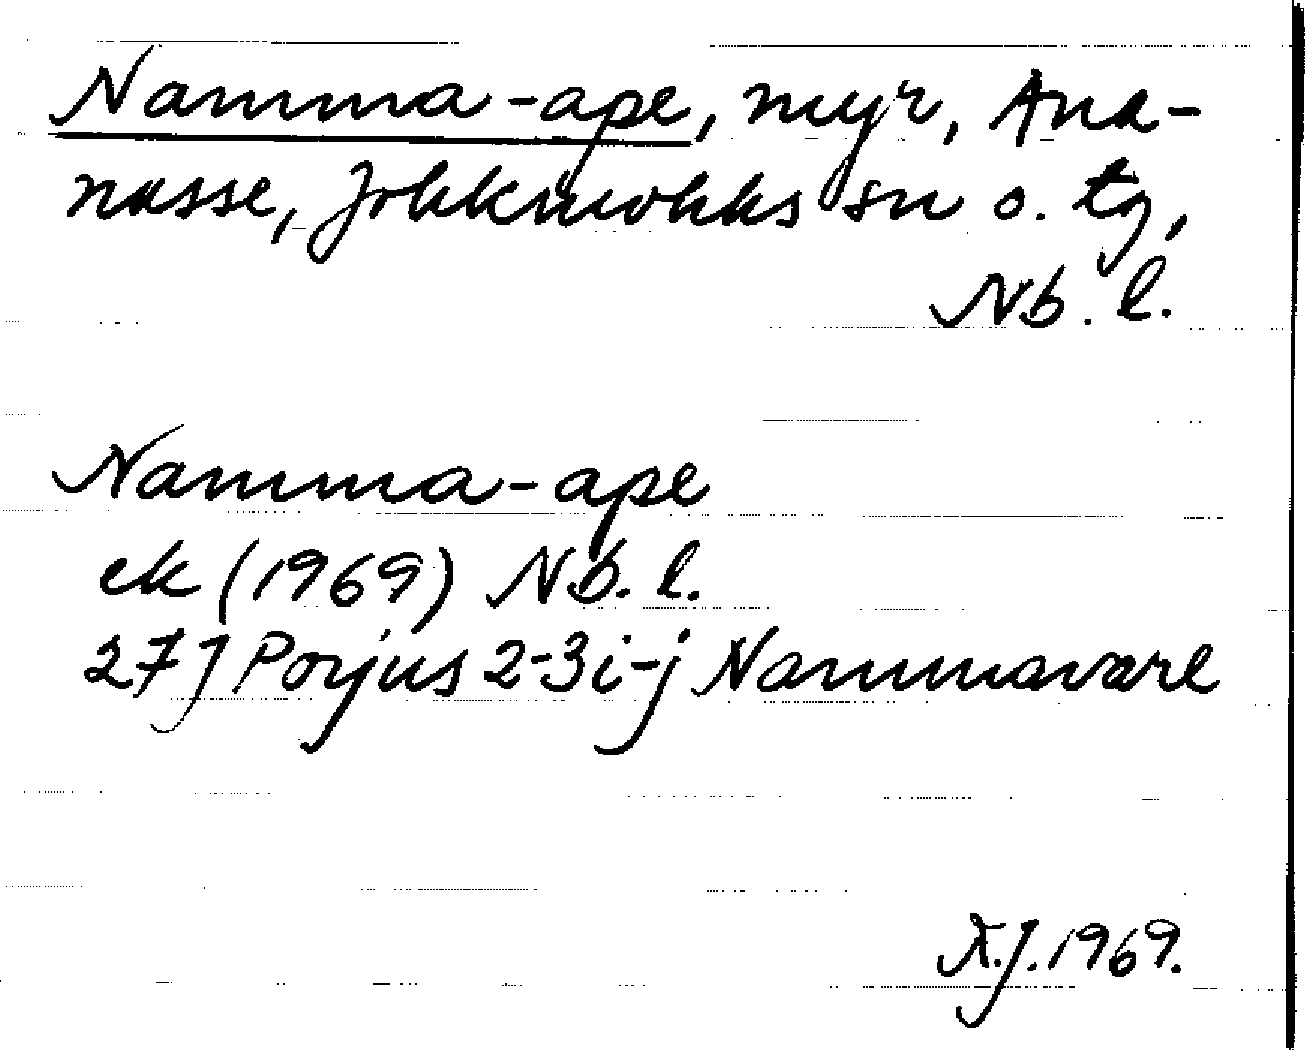 Namma-ape, myr, Ana-
nasse, Jokkmokks sn o. tg,
Nb. l.
Namma-ape
ek (1969) Nb. l.
27 J Porjus 2-3 i-j Nammavare
A.J. 1969.